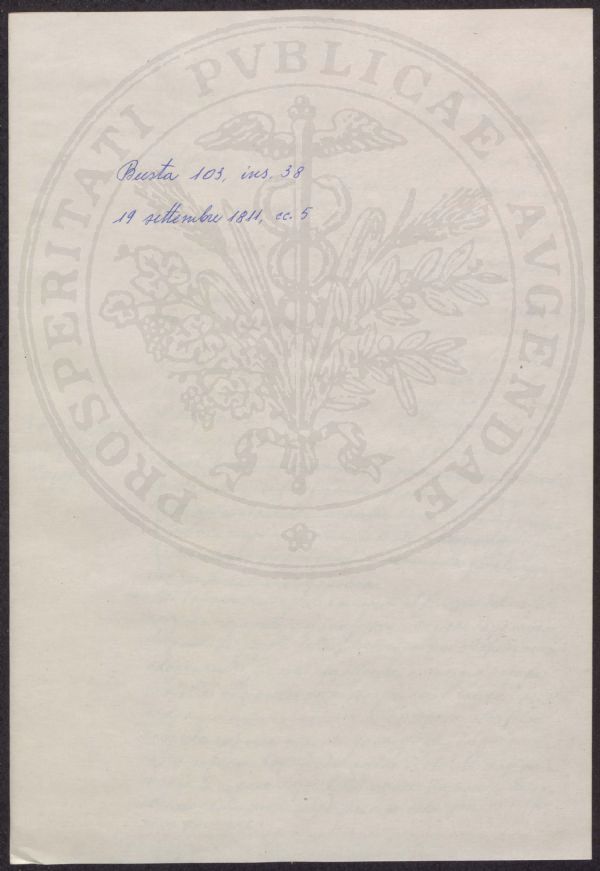 Busta 103, ins. 38
19 settembre 1811, cc. 5
PROSPERITATI PVBLICAE AVGENDAE